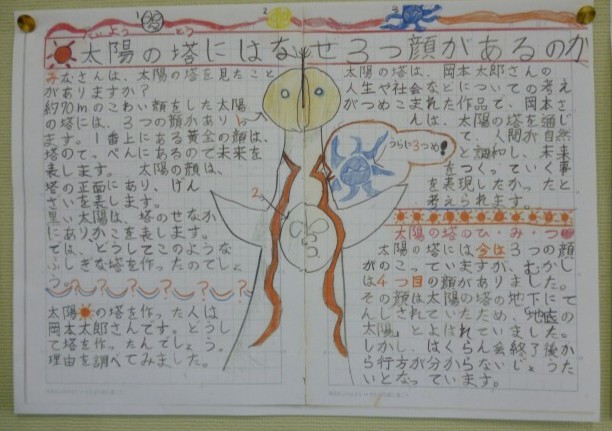 たいようのとう
1
2
3
太陽の塔にはなぜ3つ顔があるのか
みなさんは、太陽の塔を見たこと
がありますか?
約70mのこわい顔をした太陽
の塔には、3つの顔があり
ます。1番上にある黄金の顔は、
塔のてっぺんにあるので未来を
表します。太陽の顔は、
塔の正面にあり、げん
ざいを表します。
黒い太陽は、塔のせなか
にあり、かこを表します。
では、どうしてこのような
ふしぎな塔を作ったのでしょ
う。
太陽の塔を作った人は
岡本太郎さんです。どうし
て塔を作ったんでしょう。
理由を調べてみました。
1
2
うらに3つめ!
太陽の塔は、岡本太郎さんの
人生や社会などについての考え
がつめこまれた作品で、岡本さ
んは、太陽の塔を通じ
て、人間が自然
と調和し、未来
をつくっていく事
を表現したかったと
考えられます。
太陽の塔のひ・み・つ
太陽の塔には今は3つの顔
がのこっていますが、むかし
は4つ目の顔がありました。
その顔は太陽の塔の地下にて
んじされていたため、「地底の
太陽」とよばれていました。
しかし、はくらん会終了後か
ら行方が分からないじょうた
いとなっています。